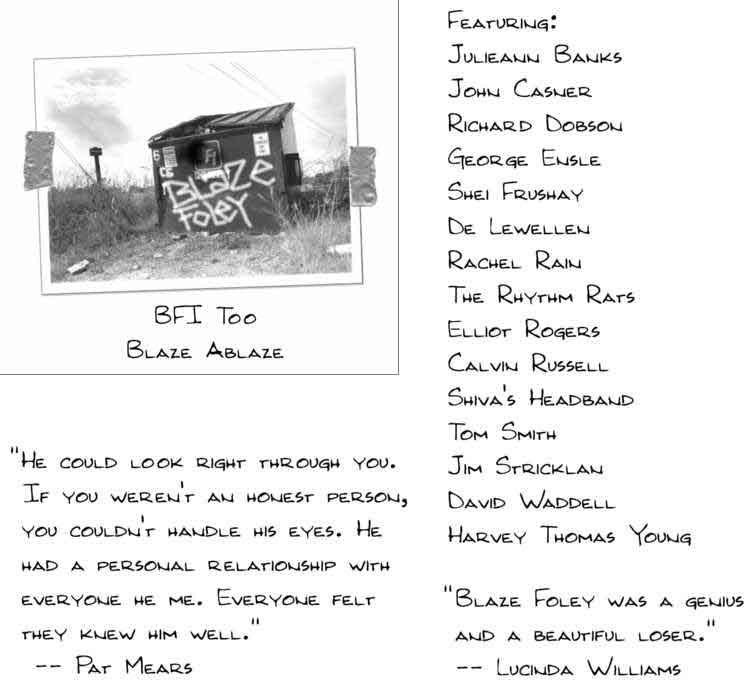 Blaze
Foley
BFI Too
Blaze Ablaze
"He could look right through you.
If you weren't an honest person,
you couldn't handle his eyes. He
had a personal relationship with
everyone he me. Everyone felt
they knew him well."
-- Pat Mears
Featuring:
Julieann Banks
John Casner
Richard Dobson
George Ensle
Shei Frushay
De Lewellen
Rachel Rain
The Rhythm Rats
Elliot Rogers
Calvin Russell
Shiva's Headband
Tom Smith
Jim Stricklan
David Waddell
Harvey Thomas Young
"Blaze Foley was a genius
and a beautiful loser."
-- Lucinda Williams